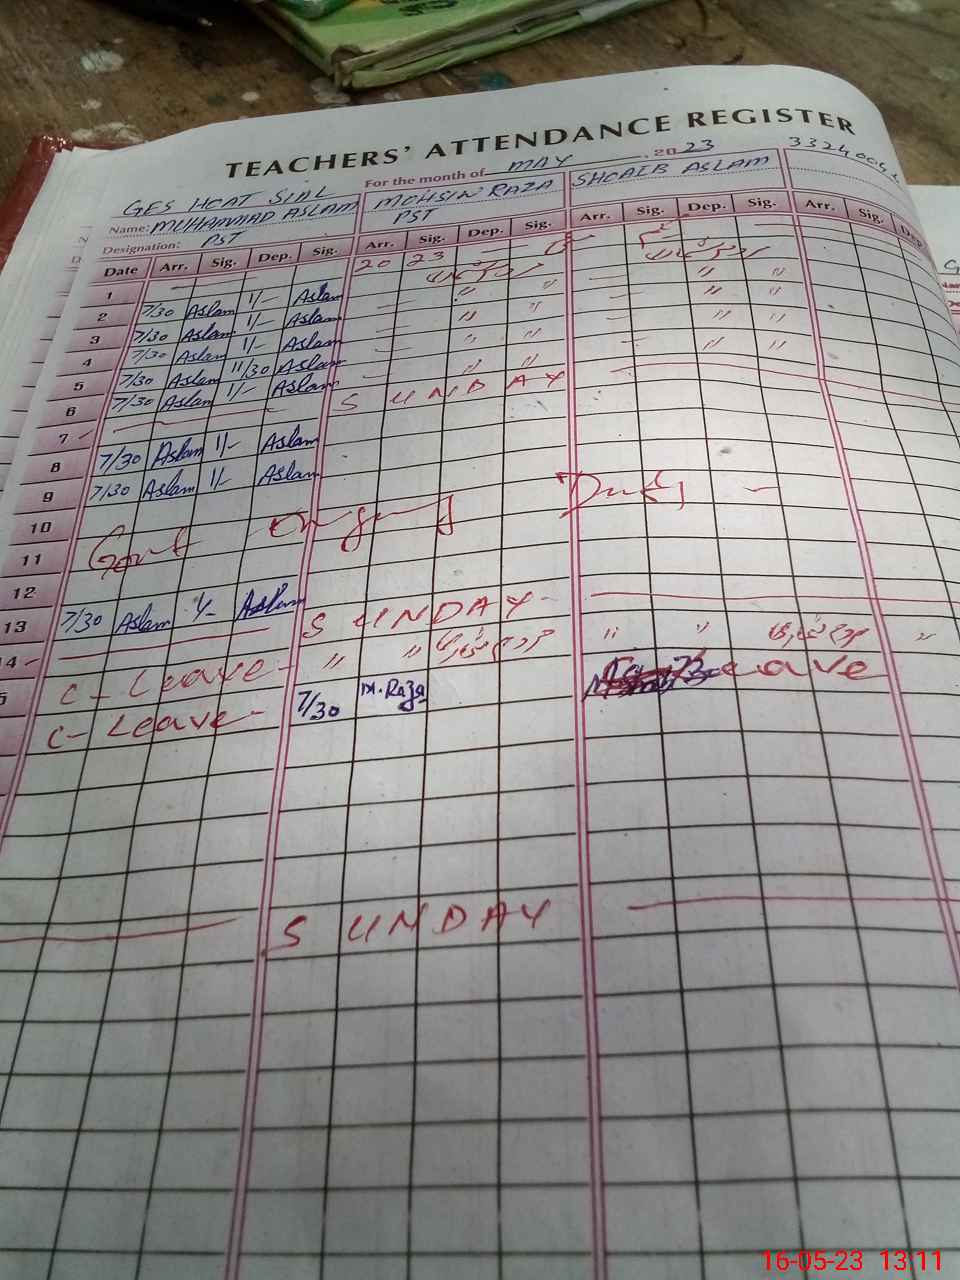 TEACHERS' ATTENDANCE REGISTER
For the month of MAY 2023
GES HOAT SIAL
Name: MUHAMMAD ASLAM MOHSIN RAZA SHOAIB ASLAM 
Designation: PST PST
Date Arr. Sig. Dep. Sig. Arr. Sig. Dep. Sig. Arr. Sig. Dep. Sig. Arr. Sig. Dep.
1 20 23
2 7/30 Aslam 1/- Aslam " "
3 7/30 Aslam 1/- Aslam " " " "
4 7/30 Aslam 1/- Aslam " " " "
5 7/30 Aslam 11/30 Aslam " " " "
6 7/30 Aslam 1/- Aslam " " " "
7 SUNDAY
8 7/30 Aslam 1/- Aslam
9 7/30 Aslam 1/- Aslam
10
11 Govt Duty -
12
13 7/30 Aslam 1/- Aslam
14 SUNDAY
5 C- Leave - " " " " "
C- Leave - 7/30 M. Raza Leave
SUNDAY
16-05-23 13:11